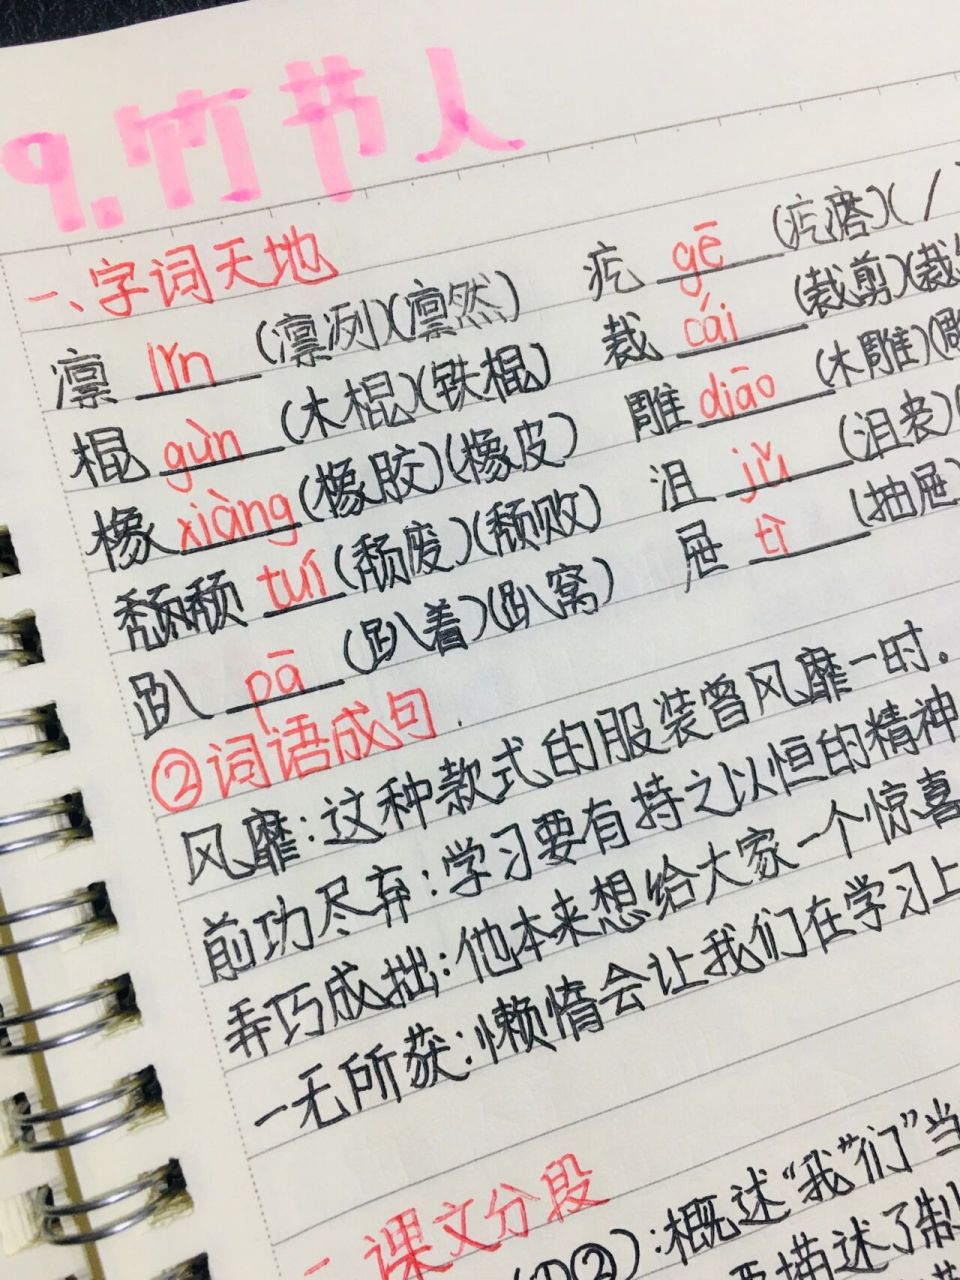 9.竹节人
一、字词天地
凛 lǐn (凛冽)(凛然) 疙 gē (疙瘩)( /
棍 gùn (木棍)(铁棍) 裁 cái (裁剪)(裁
橡 xiàng (橡胶)(橡皮) 雕 diāo (木雕)(雕
颓 tuí (颓废)(颓败) 沮 jǔ (沮丧)(
趴 pā (趴着)(趴窝) 屉 tì (抽屉)
②词语成句
风靡:这种款式的服装曾风靡一时。
前功尽弃:学习要有持之以恒的精神
弄巧成拙:他本来想给大家一个惊喜
一无所获:懒惰会让我们在学习上
一 课文分段
(①②):概述“我们”当
描述了制